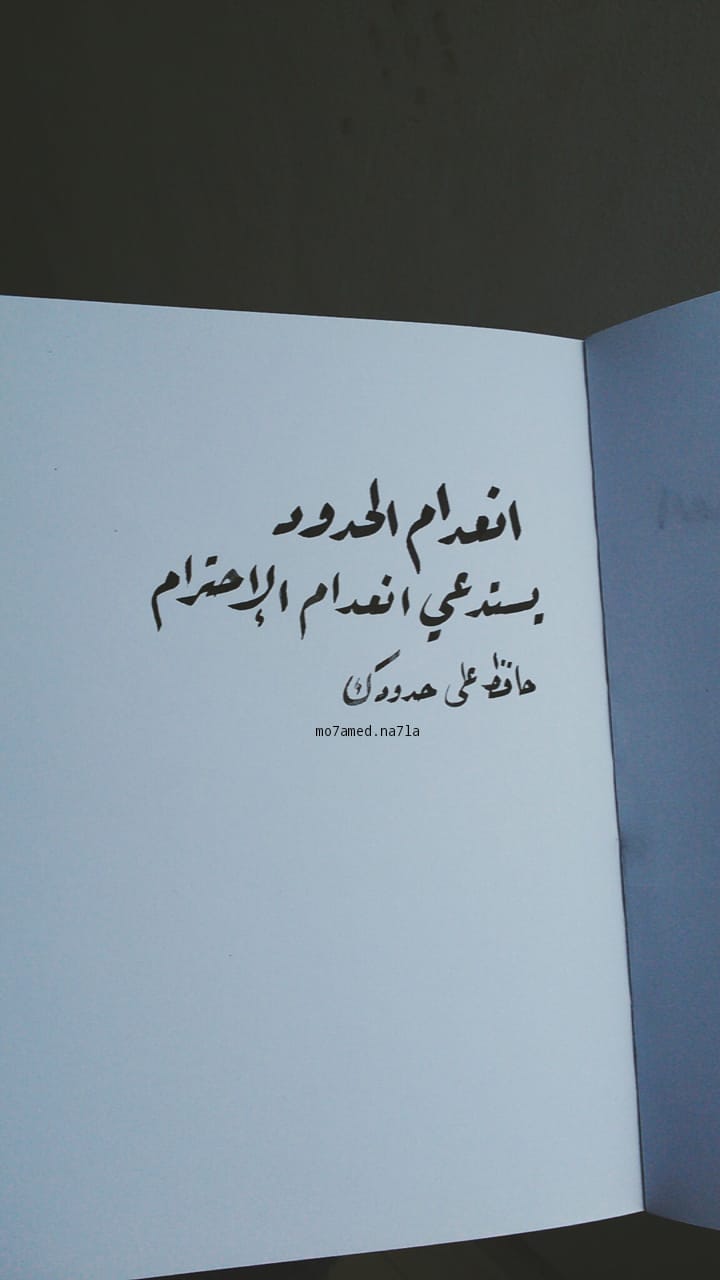 انعدام الحدود
يستدعي انعدام الإحترام
حافظ على حدودك
mo7amed.na7la